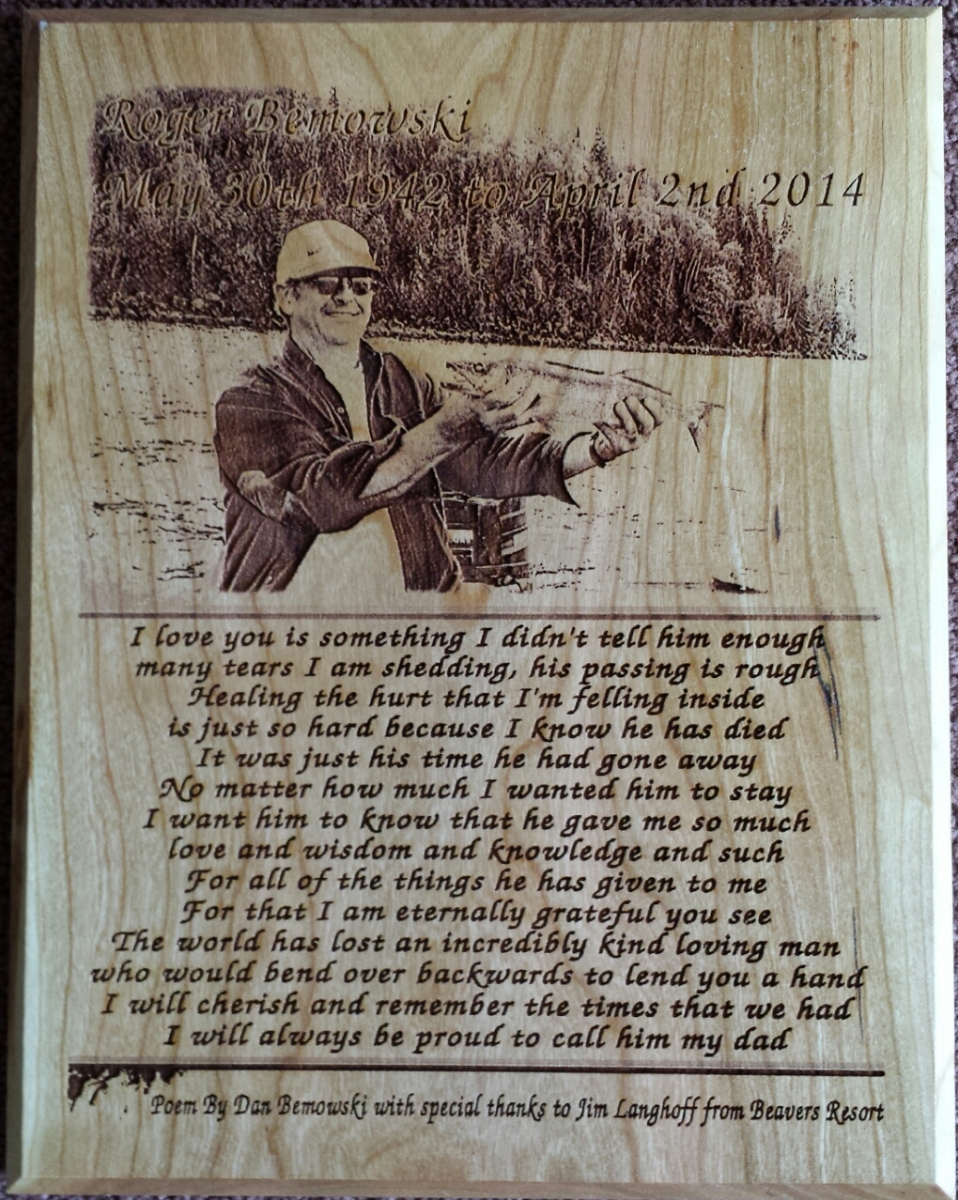 Roger Bemowski
May 30th 1942 to April 2nd 2014
I love you is something I didn't tell him enough
many tears I am shedding, his passing is rough
Healing the hurt that I'm felling inside
is just so hard because I know he has died
It was just his time he had gone away
No matter how much I wanted him to stay
I want him to know that he gave me so much
love and wisdom and knowledge and such
For all of the things he has given to me
For that I am eternally grateful you see
The world has lost an incredibly kind loving man
who would bend over backwards to lend you a hand
I will cherish and remember the times that we had
I will always be proud to call him my dad
Poem By Dan Bemowski with special thanks to Jim Langhoff from Beavers Resort